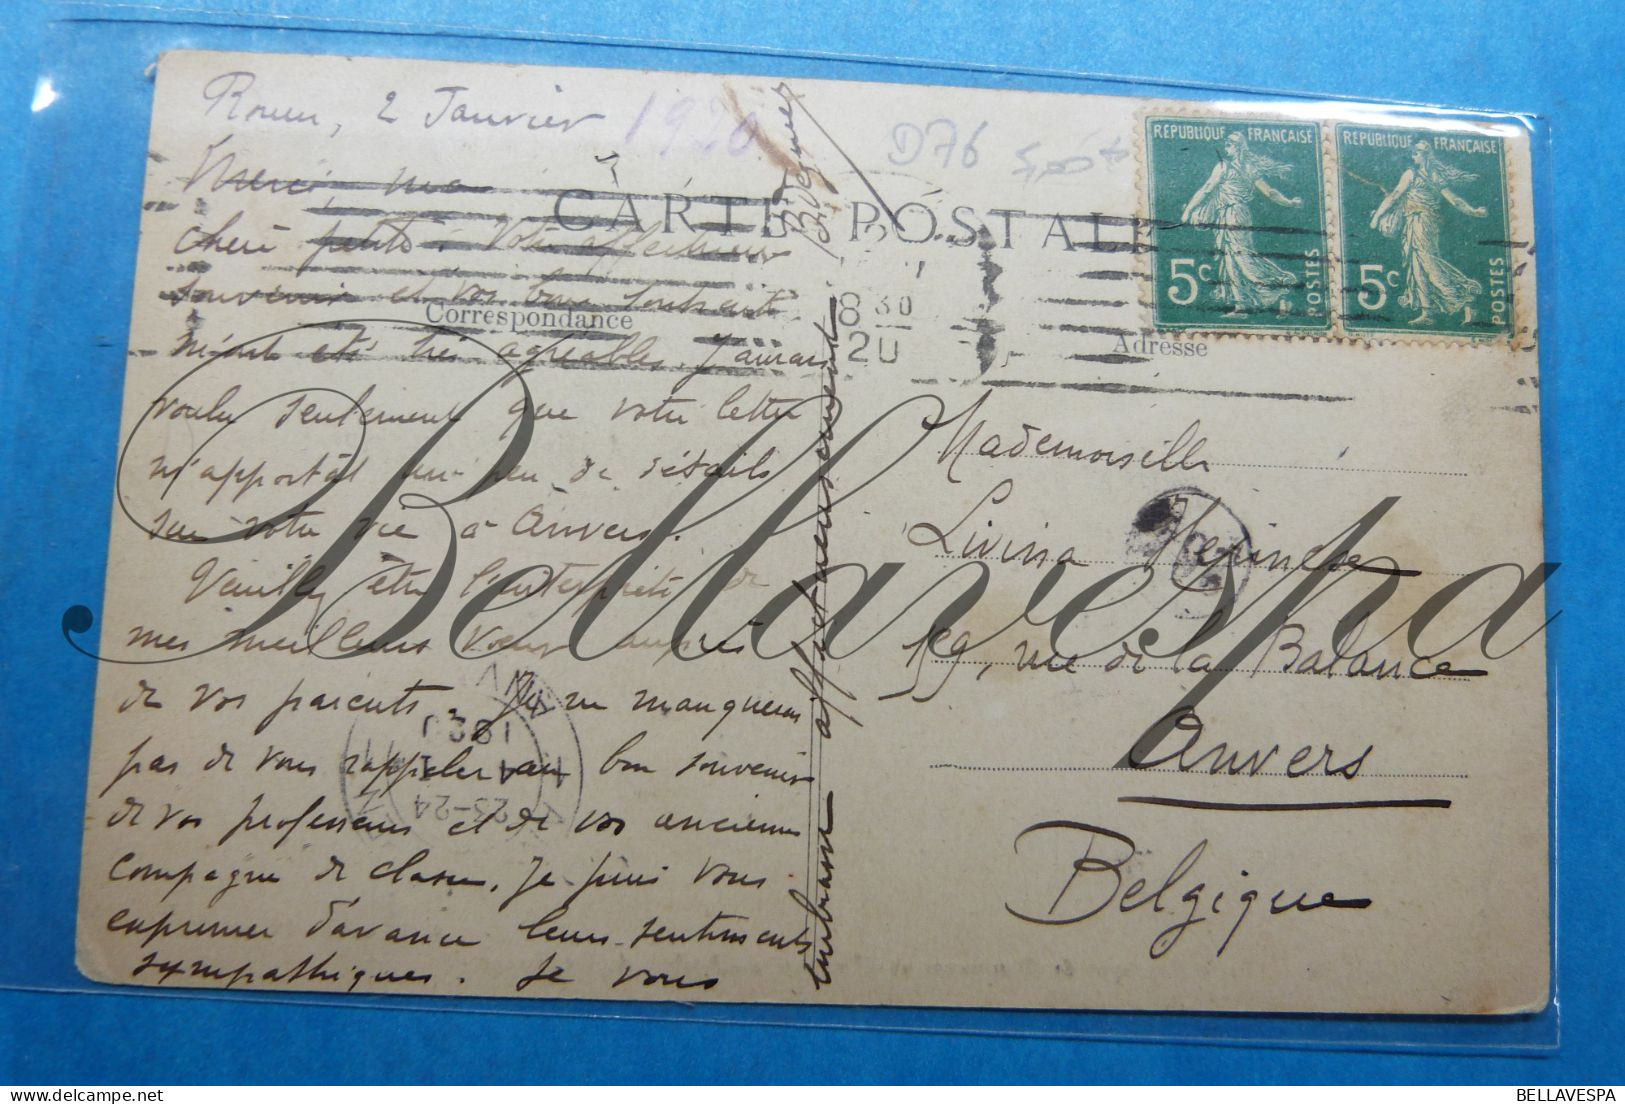 Rouen, 2 Janvier 1920
D76
Merci, ma
chère petite. Votre affectueux
souvenir et vos bons souhaits
m'ont été très agréables. J'aurais
voulu seulement que votre lettre
m'apportât un peu de détails
sur votre vie à Anvers.
Veuillez être l'interprète de
mes meilleurs vœux auprès
de vos parents. Je ne manquerai
pas de vous rappeler au bon souvenir
de vos professeurs et de vos anciennes
compagnes de classe. Je puis vous
exprimer d'avance leurs sentiments
sympathiques. Je vous
embrasse affectueusement
CARTE POSTALE
Correspondance
Adresse
8 30
20
RÉPUBLIQUE FRANÇAISE
5c
POSTES
RÉPUBLIQUE FRANÇAISE
5c
POSTES
Mademoiselle
Livina
59, rue de la Balance
Anvers
Belgique
23-24
Bellavespa
BELLAVESPA